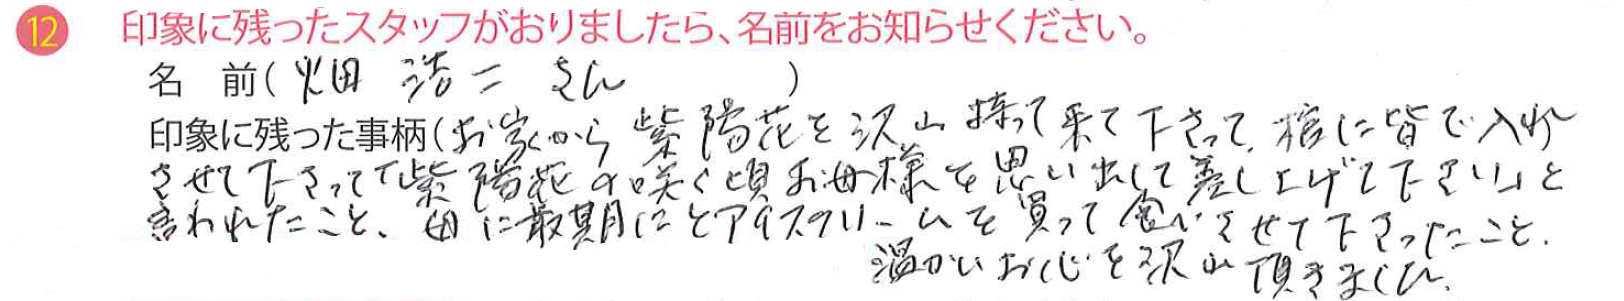 12 印象に残ったスタッフがおりましたら、名前をお知らせください。
名 前(畑 浩二 さん )
印象に残った事柄(お家から 紫陽花を沢山 持って来て下さって、棺に皆で入れ
させて下さって「紫陽花の咲く頃お母様を思い出して差し上げて下さい」と
言われたこと、母に最期にとアイスクリームを買って食べさせて下さったこと。
温かいお心を沢山頂きました。